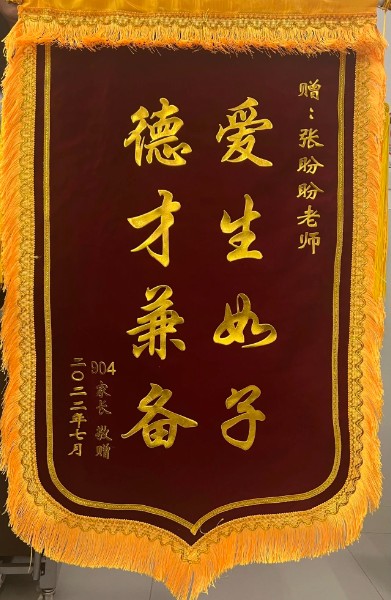 赠：张盼盼老师
爱生如子
德才兼备
904 家长 敬赠
二〇二二年七月